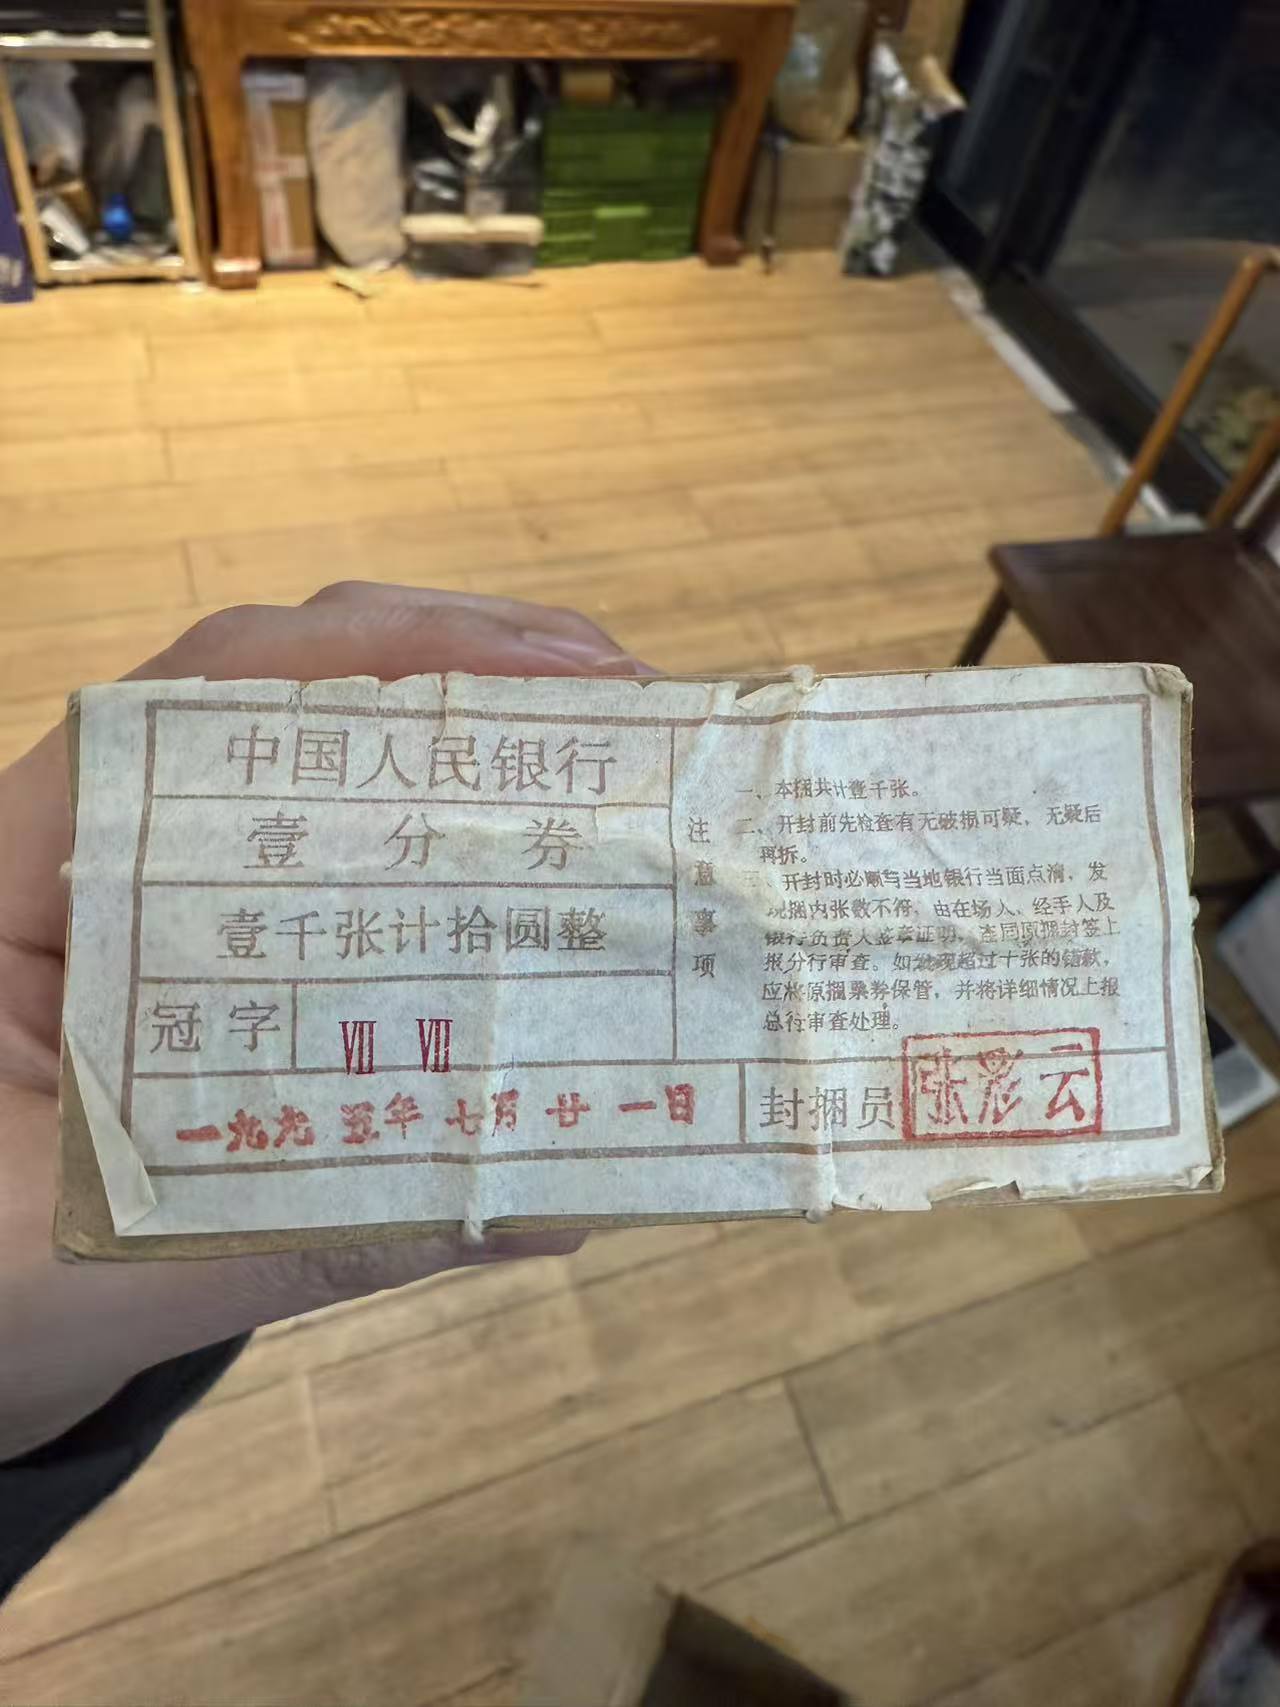 中国人民银行
壹分券
壹千张计拾圆整
冠字
Ⅶ Ⅶ
注意事项
一、本捆共计壹千张。
二、开封前先检查有无破损可疑，无疑后
再拆。
三、开封时必顺与当地银行当面点清，发
现捆内张数不符，由在场人、经手人及
银行负责人签章证明，连同原捆封签上
报分行审查。如发现超过十张的错款，
应将原捆票券保管，并将详细情况上报
总行审查处理。
一九九五年七月廿一日
封捆员
张彩云